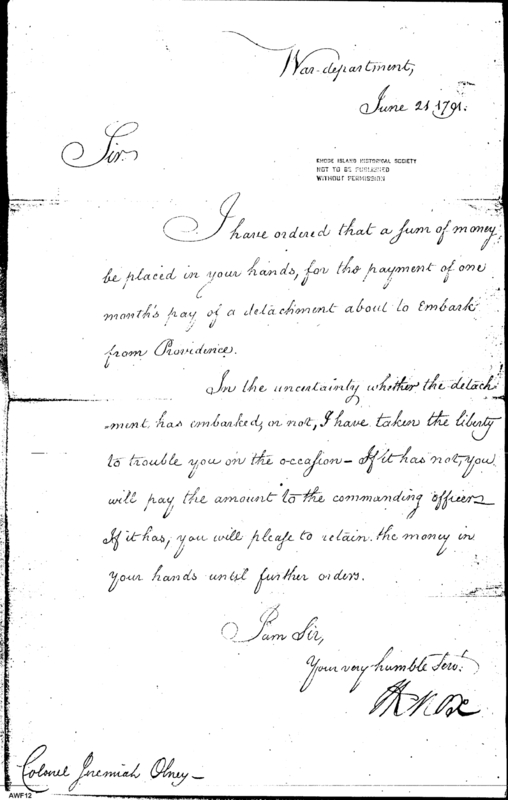 War-department,
June 21 1791.
Sir.
RHODE ISLAND HISTORICAL SOCIETY
NOT TO BE PUBLISHED
WITHOUT PERMISSION
I have ordered that a sum of money
be placed in your hands, for the payment of one
month's pay of a detachment about to Embark
from Providence.
In the uncertainty whether the detach
-ment has embarked, or not, I have taken the liberty
to trouble you on the occasion - If it has not, you
will pay the amount to the commanding officer -
If it has, you will please to retain the money in
your hands until further orders.
I am Sir,
Your very humble Servt.
HKnox
Colonel Jeremiah Olney -
AWF12